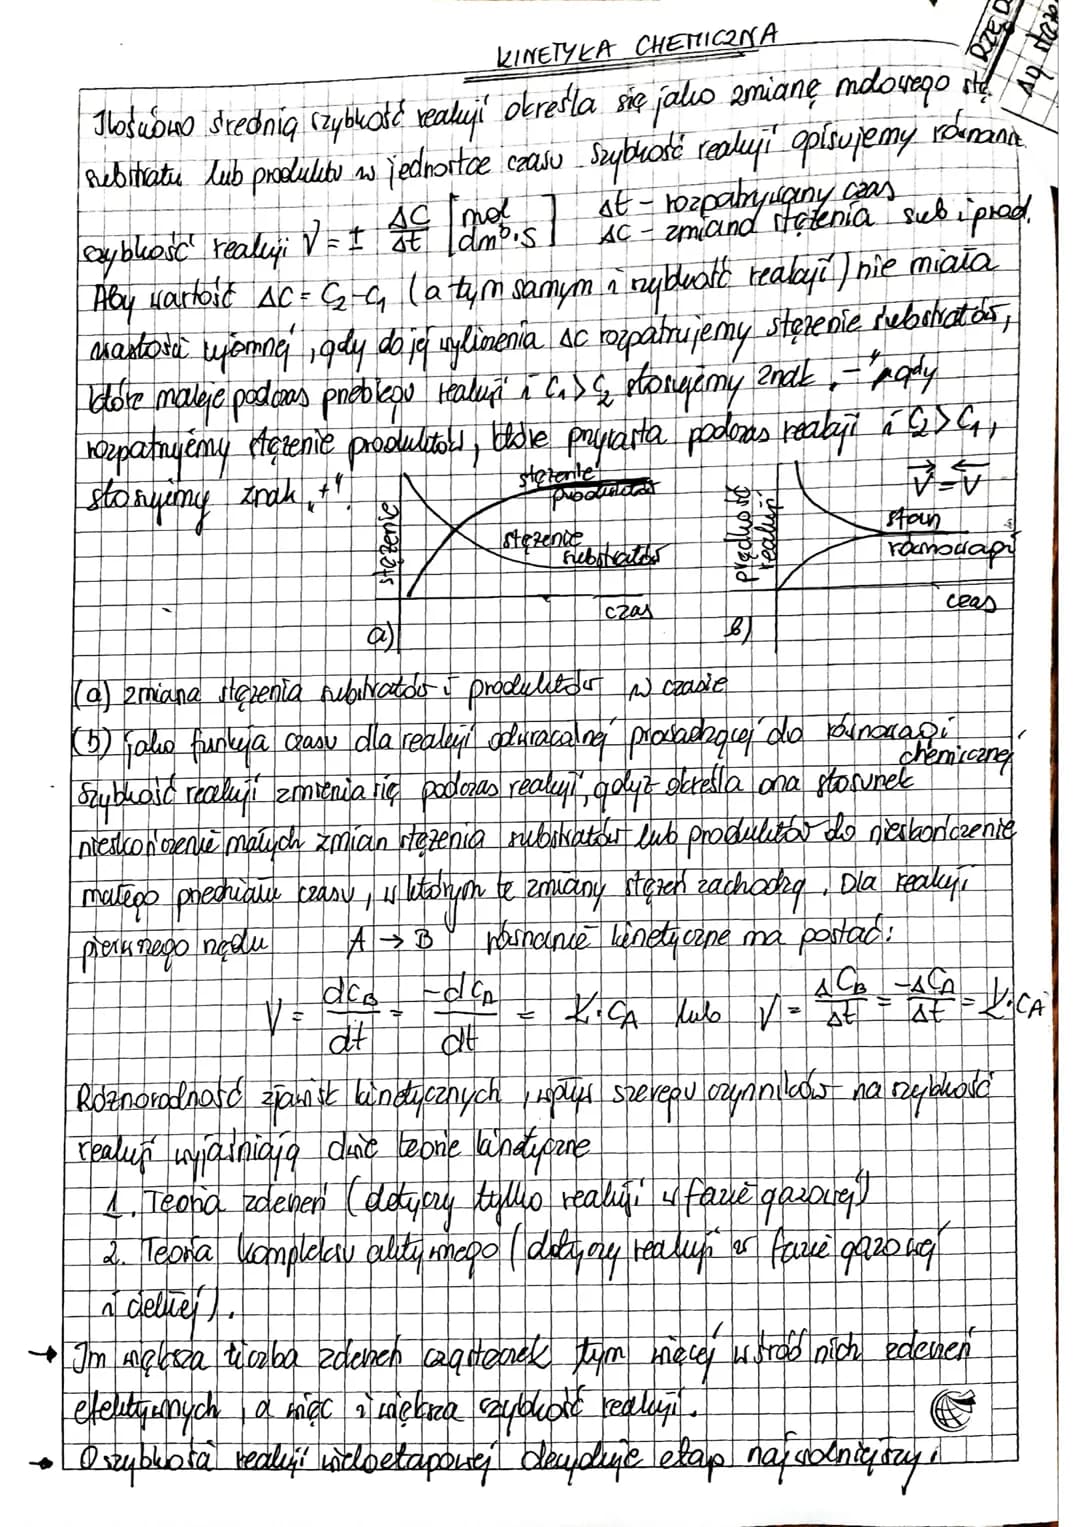 KINETYKA CHEMICZNA
Ilościowo średnią szybkość reakcji określa się jako zmianę molowego stę.
substratu lub produktu w jednostce czasu. Szybkość reakcji opisujemy równanie
szybkość reakcji V = ± ΔC/Δt [mol/dm³·s] Δt – rozpatrywany czas
ΔC – zmiana stężenia sub i prod.
Aby wartość ΔC = C₂-C₁ (a tym samym i szybkość reakcji) nie miała
wartości ujemnej, gdy do jej wyliczenia ΔC rozpatrujemy stężenie substratów,
które maleje podczas przebiegu reakcji i C₁>C₂ stosujemy znak „-" gdy
rozpatrujemy stężenie produktów, które przyrasta podczas reakcji i C₂>C₁,
stosujemy znak „+"
stężenie
stężenie produktów
stężenie substratów
czas
a)
prędkość reakcji
V⃗ = V⃖
stan równowagi
czas
b)
(a) zmiana stężenia substratów i produktów w czasie
(b) jako funkcja czasu dla reakcji odwracalnej prowadzącej do równowagi
chemicznej
Szybkość reakcji zmienia się podczas reakcji, gdyż określa ona stosunek
nieskończenie małych zmian stężenia substratów lub produktów do nieskończenie
małego przedziału czasu, w którym te zmiany stężeń zachodzą. Dla reakcji
pierwszego rzędu A → B równanie kinetyczne ma postać:
V = dC_B/dt = -dC_A/dt = K·C_A lub V = ΔC_B/Δt = -ΔC_A/Δt = K·C_A
Różnorodność zjawisk kinetycznych, wpływ szeregu czynników na szybkość
reakcji wyjaśniają dwie teorie kinetyczne
1. Teoria zderzeń (dotyczy tylko reakcji w fazie gazowej)
2. Teoria kompleksu aktywnego (dotyczy reakcji w fazie gazowej
i ciekłej).
→ Im większa liczba zderzeń cząsteczek tym więcej wśród nich zderzeń
efektywnych, a więc i większa szybkość reakcji.
→ O szybkości reakcji wieloetapowej decyduje etap najwolniejszy,